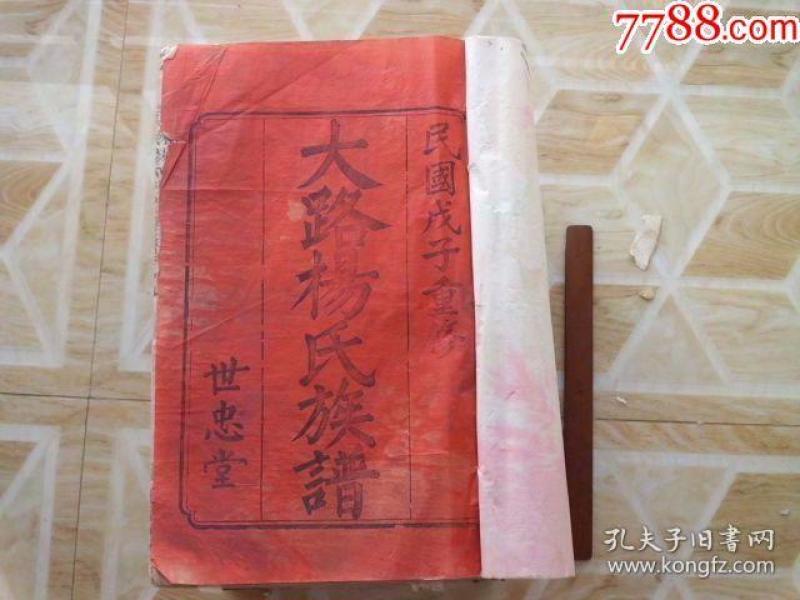 民國戊子重修
大路楊氏族譜
世忠堂
7788.com
孔夫子旧書网
www.kongfz.com